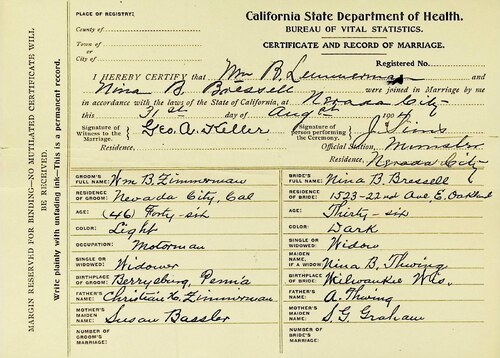 PLACE OF REGISTRY:
County of
Town of
or
City of
California State Department of Health.
BUREAU OF VITAL STATISTICS.
CERTIFICATE AND RECORD OF MARRIAGE.
Registered No.
I HEREBY CERTIFY that Wm B. Zimmerman and
Nina B. Bressell were joined in Marriage by me
in accordance with the laws of the State of California, at Nevada City
this 31st day of August 190
Signature of Witness to the Marriage. Geo. A. Keller
Signature of person performing the Ceremony, J. Sims
Residence,
Official Station, Minister
Residence, Nevada City
GROOM'S FULL NAME: Wm B. Zimmerman
RESIDENCE OF GROOM: Nevada City, Cal
AGE: (46) Forty-six
COLOR: Light
OCCUPATION: Motorman
SINGLE OR WIDOWED: Widower
BIRTHPLACE OF GROOM: Berrysburg, Penn'a
FATHER'S NAME: Christian H. Zimmerman
MOTHER'S MAIDEN NAME: Susan Bassler
NUMBER OF GROOM'S MARRIAGE:
BRIDE'S FULL NAME: Nina B. Bressell
RESIDENCE OF BRIDE: 1523-22nd Ave, E. Oakland
AGE: Thirty-six
COLOR: Dark
SINGLE OR WIDOWED: Widow
MAIDEN NAME, IF A WIDOW: Nina B. Thwing
BIRTHPLACE OF BRIDE: Milwaukie Wis.
FATHER'S NAME: A. Thwing
MOTHER'S MAIDEN NAME: S. G. Graham
NUMBER OF BRIDE'S MARRIAGE:
MARGIN RESERVED FOR BINDING—NO MUTILATED CERTIFICATE WILL
BE RECEIVED.
Write plainly with unfading ink—This is a permanent record.